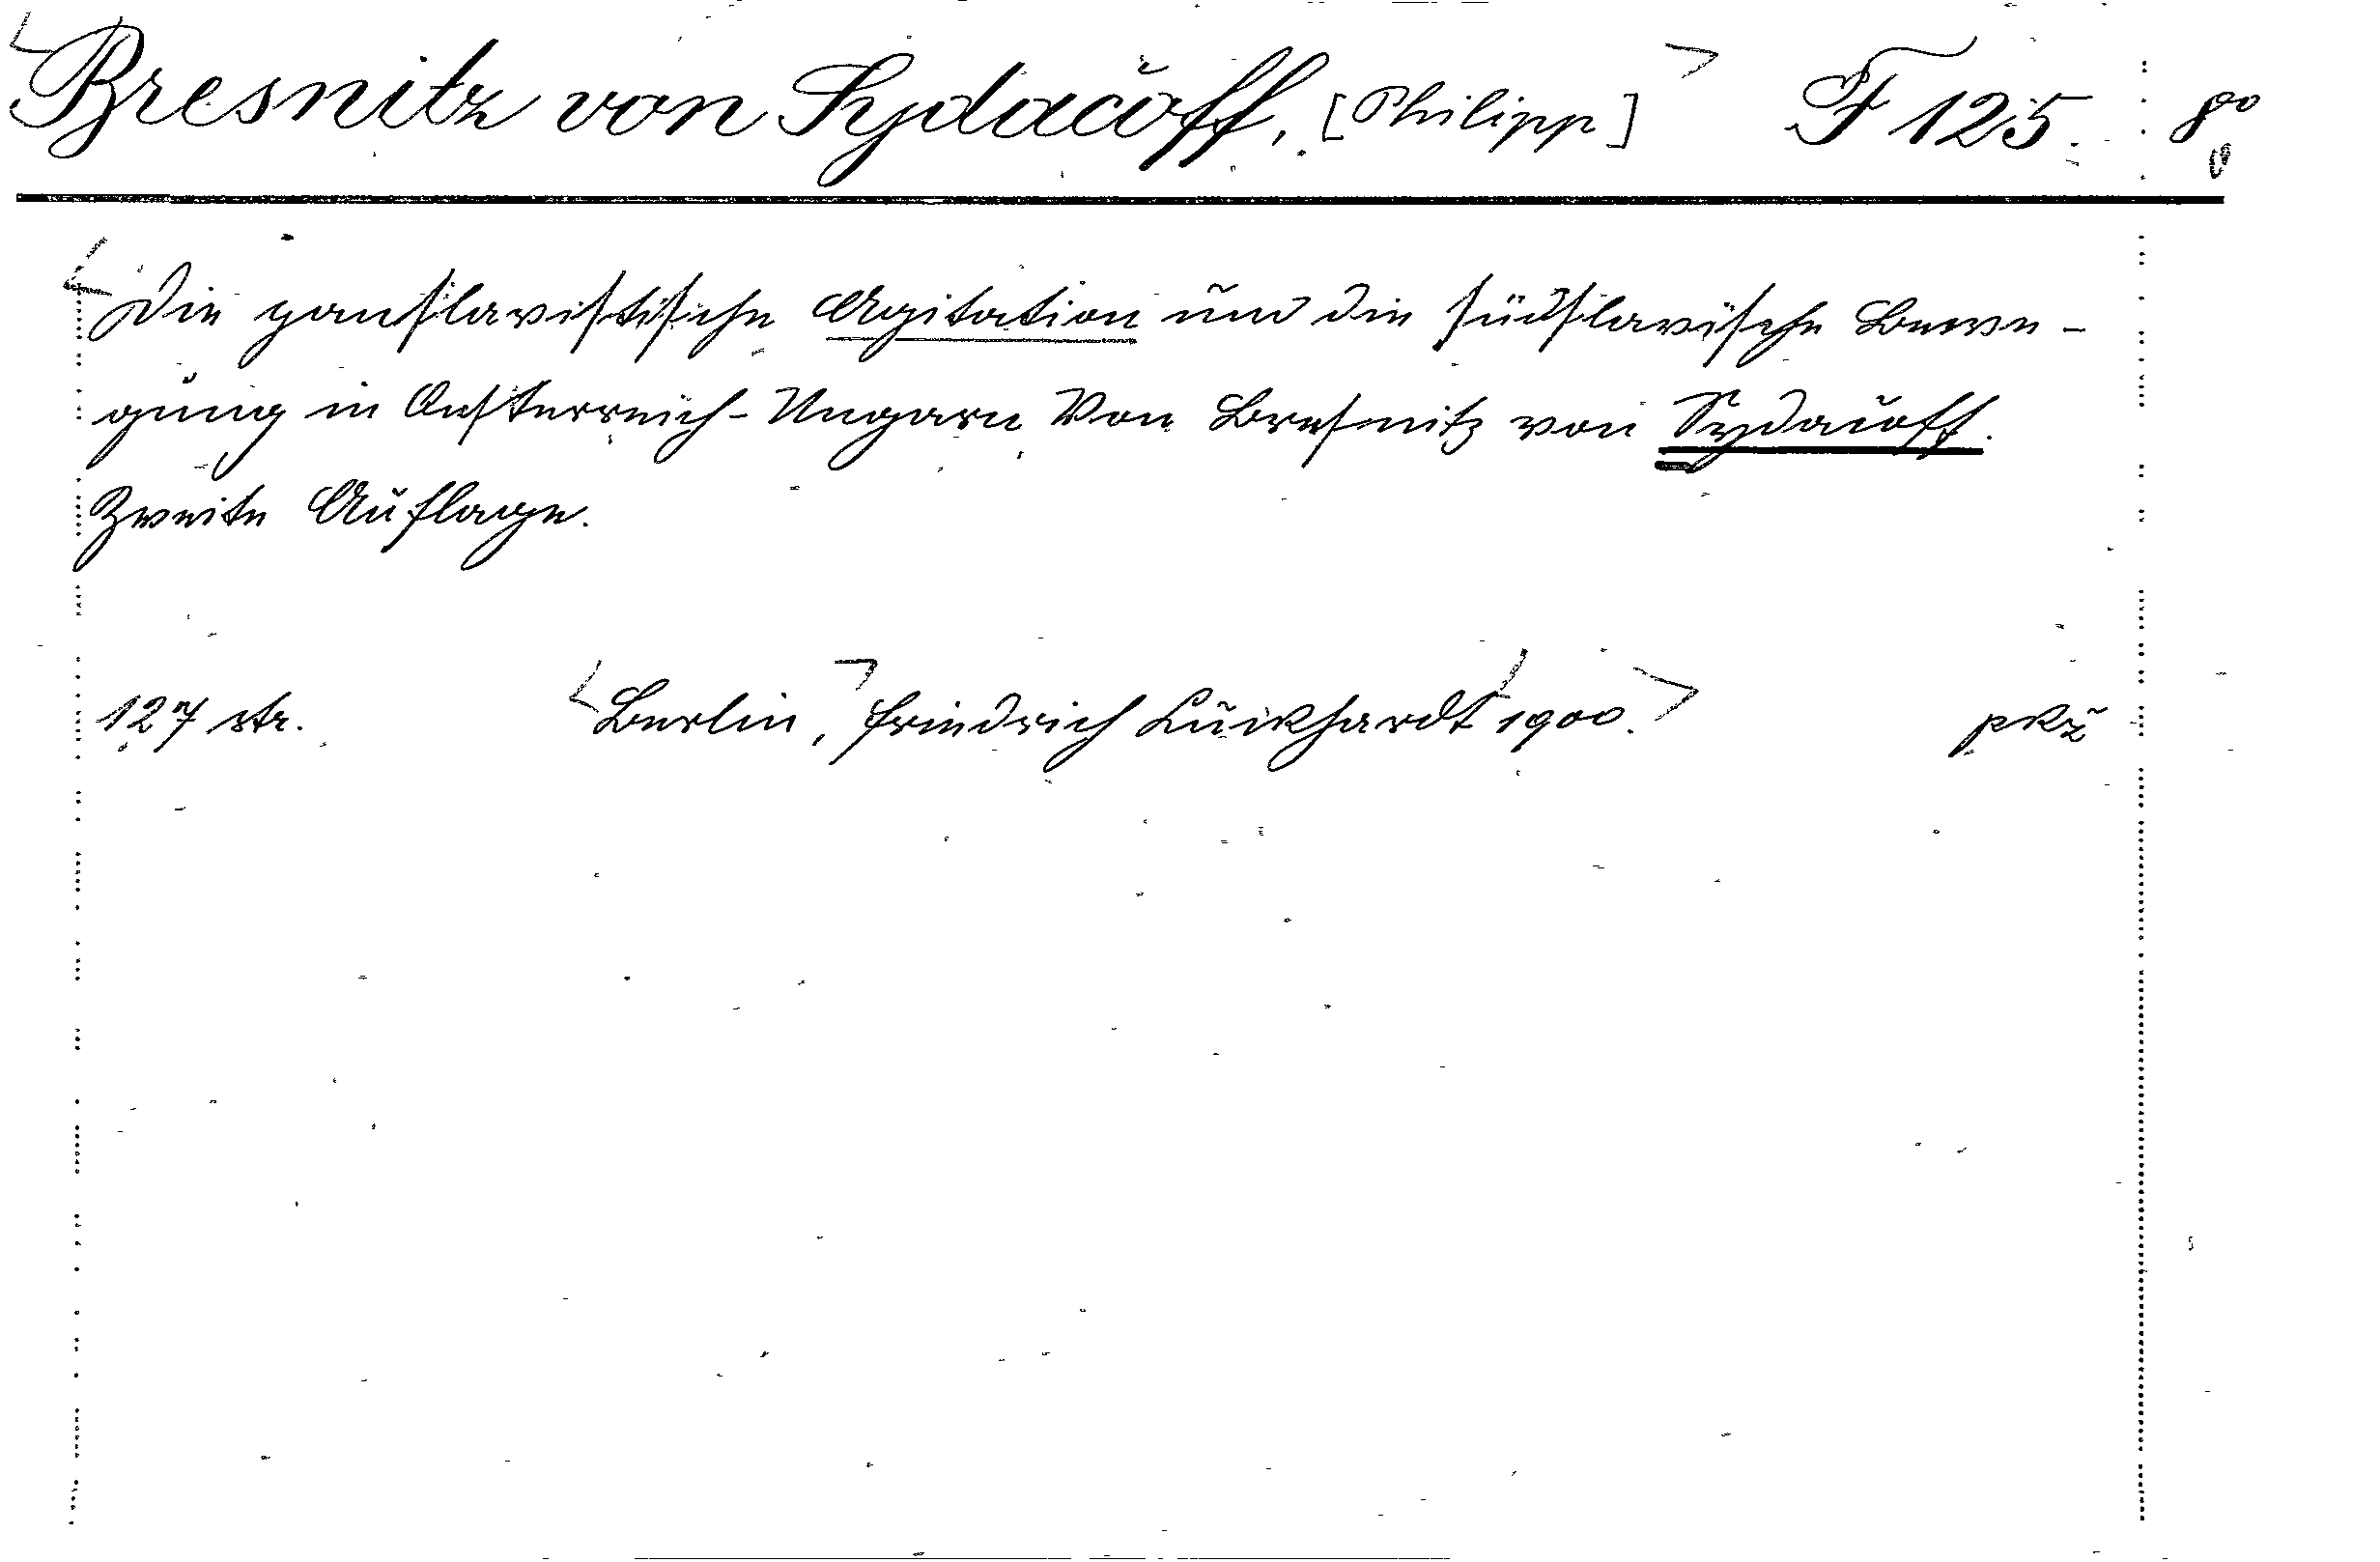 Bresnitz von Sydačoff, [Philipp] F 125. 8º
Die panslavistische Agitation und die südslavische Bewe-
gung in Oesterreich-Ungarn Von Bresnitz von Sydačoff.
Zweite Auflage.
127 str. Berlin, Friedrich Luckhardt 1900. pkž